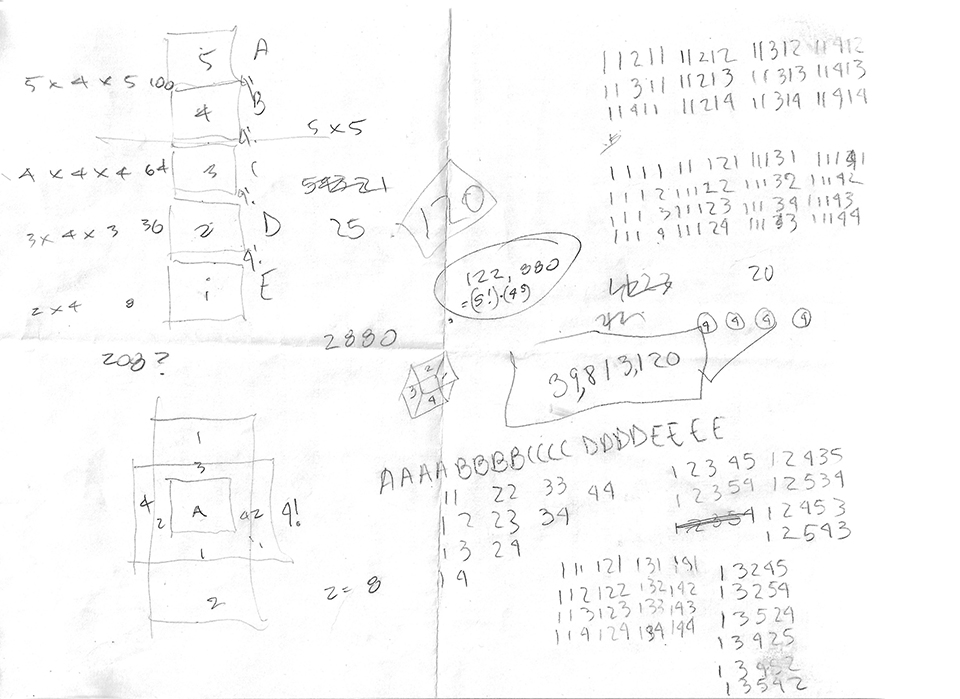 5 A
5 x 4 x 5 100 4!
4 B
4!
5 x 5
4 x 4 x 4 64 3 C
4!
3 x 4 x 3 36 2 D 25
4!
2 x 4 8 1 E
2880
208?
120
122,880
=(5!)·(4^5)
11211 11212 11312 11412
11311 11213 11313 11413
11411 11214 11314 11414
1111 11121 11131 11141
1112 11122 11132 11142
1113 11123 11134 11143
1114 11124 11133 11144
20
4 4 4 4
39,813,120
2
3 1
4
1
3
4 2 A 4 2 4!
1 1
2
2 = 8
AAAABBBBCCCCDDDDEEEE
11 22 33 44
12 23 34
13 24
14
12345 12435
12354 12534
12354 12453
12543
111 121 131 141
112 122 132 142
113 123 133 143
114 124 134 144
13245
13254
13524
13425
13542